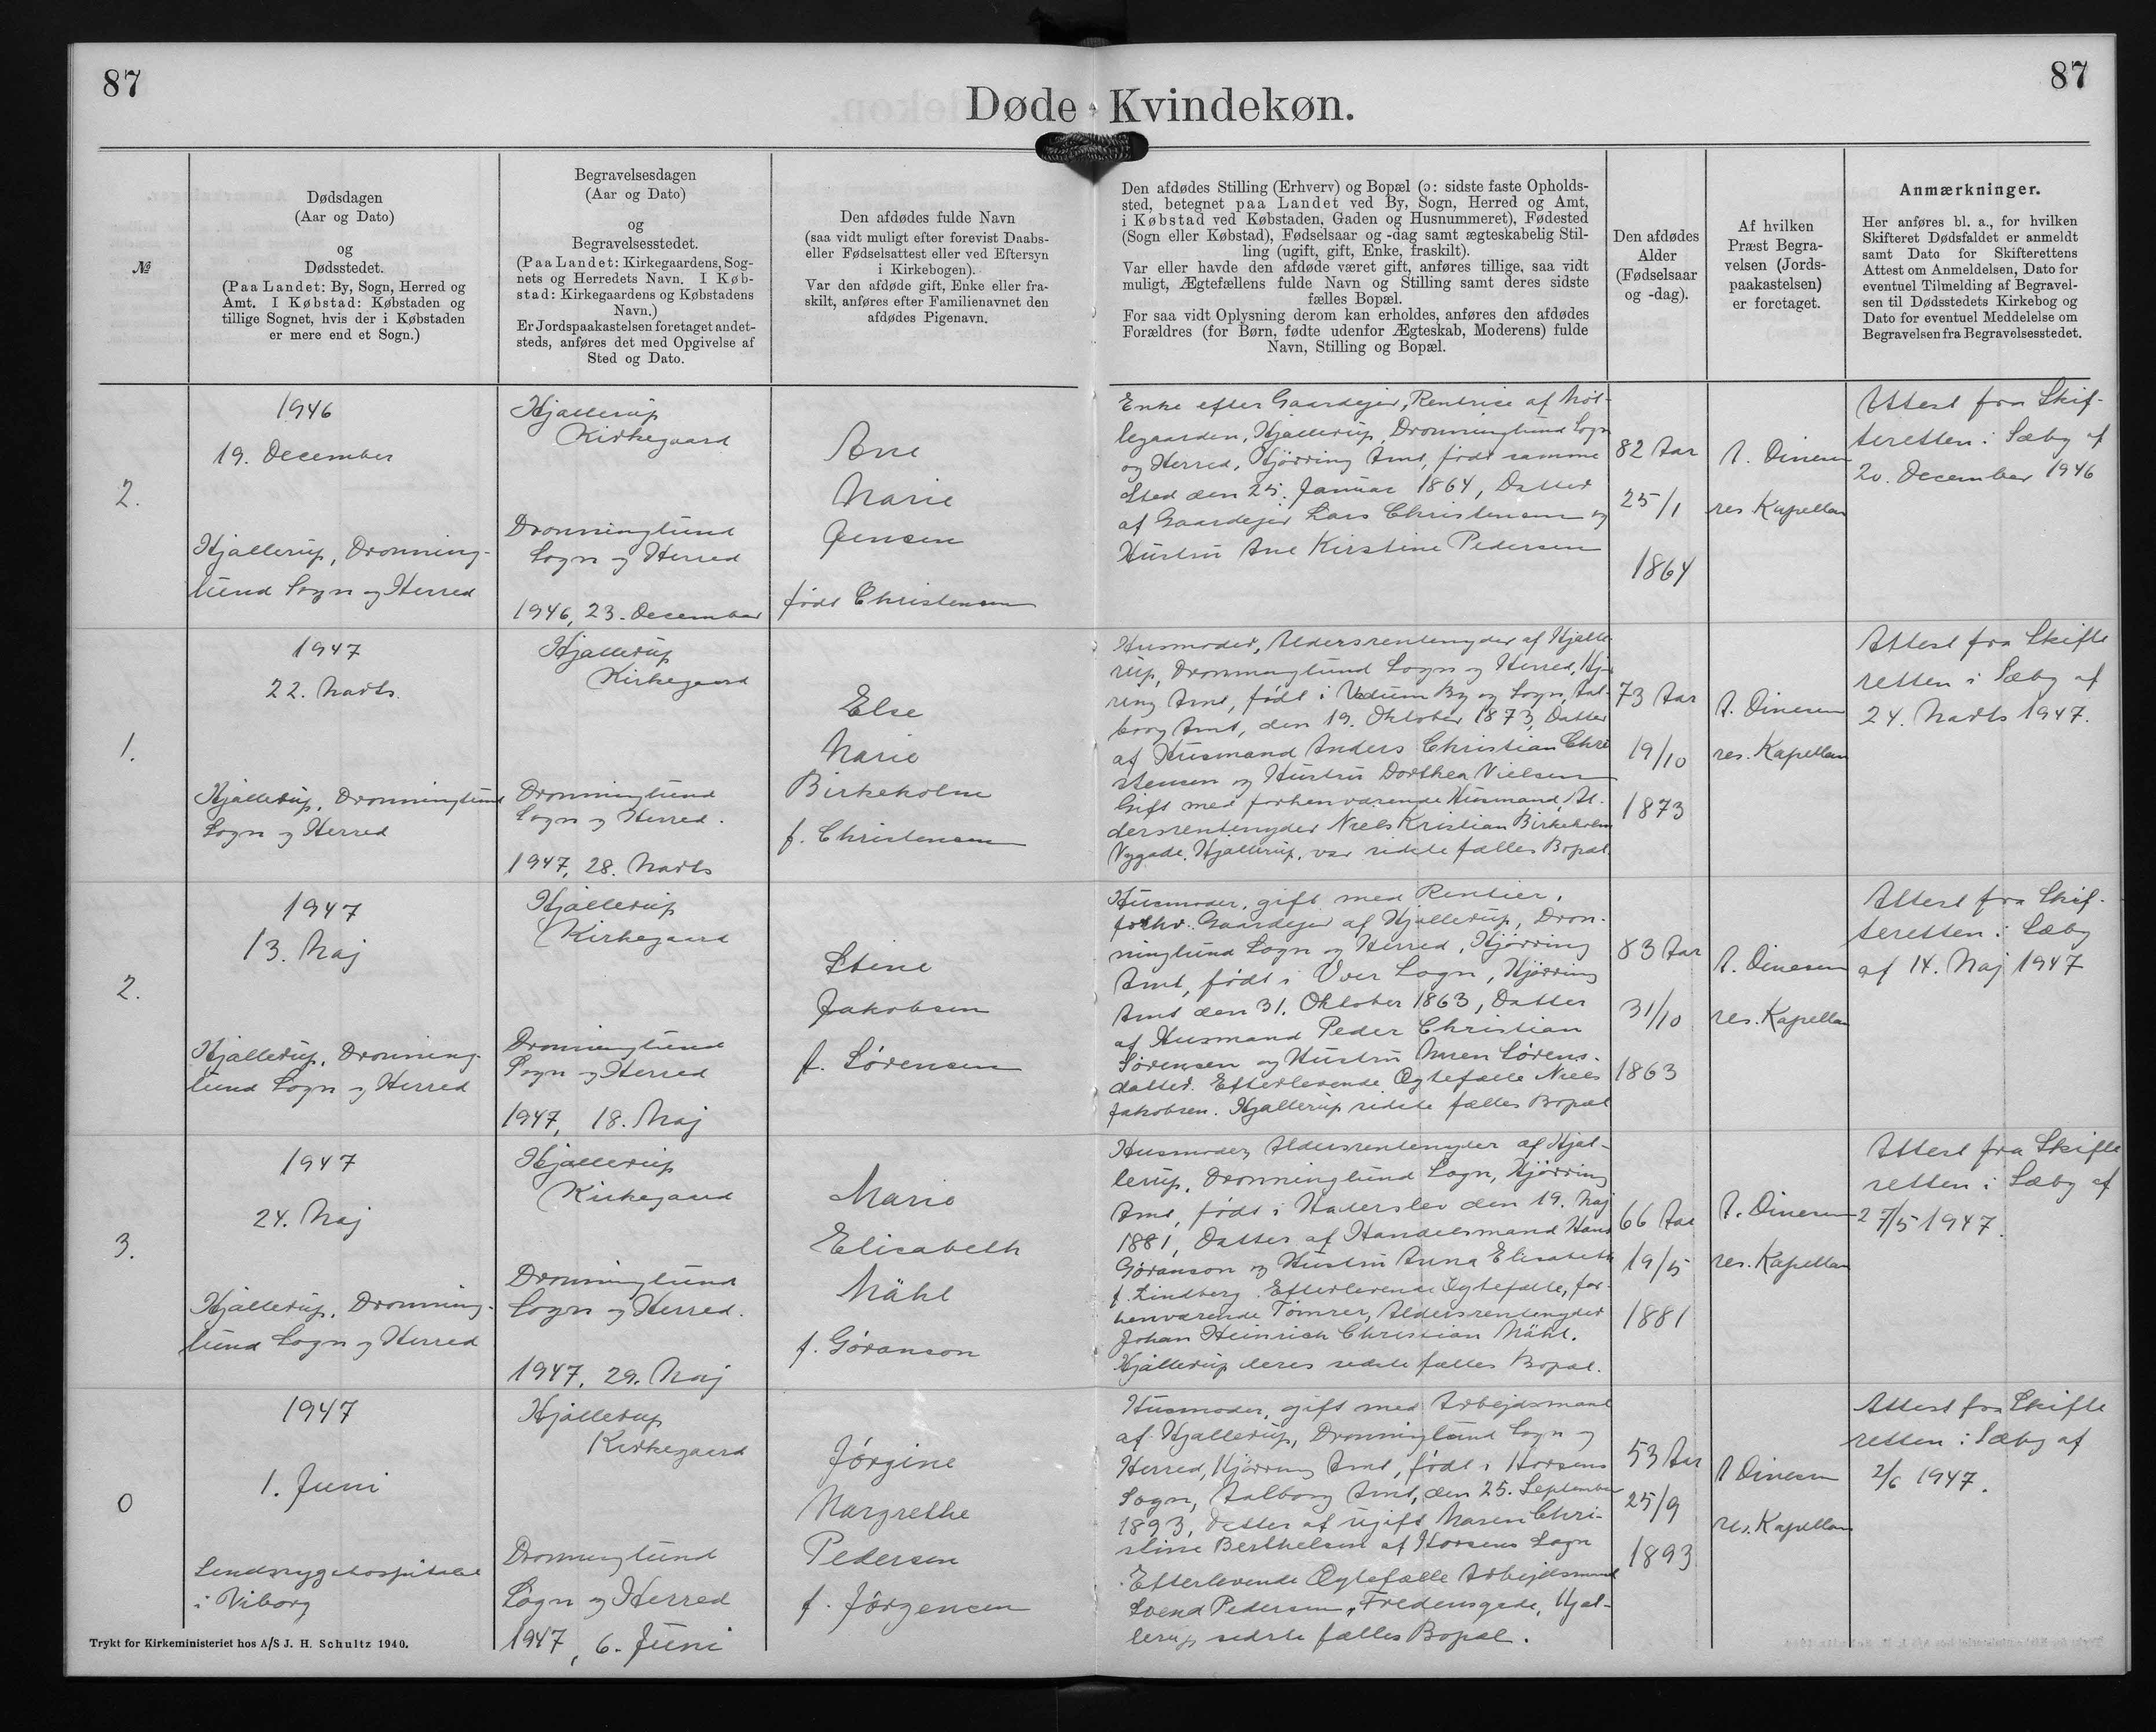 87
87
Døde Kvindekøn.
№
Dødsdagen
(Aar og Dato)
og
Dødsstedet.
(Paa Landet: By, Sogn, Herred og
Amt. I Købstad: Købstaden og
tillige Sognet, hvis der i Købstaden
er mere end et Sogn.)
Begravelsesdagen
(Aar og Dato)
og
Begravelsesstedet.
(Paa Landet: Kirkegaardens, Sog-
nets og Herredets Navn. I Køb-
stad: Kirkegaardens og Købstadens
Navn.)
Er Jordspaakastelsen foretaget andet-
steds, anføres det med Opgivelse af
Sted og Dato.
Den afdødes fulde Navn
(saa vidt muligt efter forevist Daabs-
eller Fødselsattest eller ved Eftersyn
i Kirkebogen).
Var den afdøde gift, Enke eller fra-
skilt, anføres efter Familienavnet den
afdødes Pigenavn.
Den afdødes Stilling (Erhverv) og Bopæl (ɔ: sidste faste Opholds-
sted, betegnet paa Landet ved By, Sogn, Herred og Amt,
i Købstad ved Købstaden, Gaden og Husnummeret), Fødested
(Sogn eller Købstad), Fødselsaar og -dag samt ægteskabelig Stil-
ling (ugift, gift, Enke, fraskilt).
Var eller havde den afdøde været gift, anføres tillige, saa vidt
muligt, Ægtefællens fulde Navn og Stilling samt deres sidste
fælles Bopæl.
For saa vidt Oplysning derom kan erholdes, anføres den afdødes
Forældres (for Børn, fødte udenfor Ægteskab, Moderens) fulde
Navn, Stilling og Bopæl.
Den afdødes
Alder
(Fødselsaar
og -dag).
Af hvilken
Præst Begra-
velsen (Jords-
paakastelsen)
er foretaget.
Anmærkninger.
Her anføres bl. a., for hvilken
Skifteret Dødsfaldet er anmeldt
samt Dato for Skifterettens
Attest om Anmeldelsen, Dato for
eventuel Tilmelding af Begravel-
sen til Dødsstedets Kirkebog og
Dato for eventuel Meddelelse om
Begravelsen fra Begravelsesstedet.
2.
1946
19. December
Hjallerup, Dronning-
lund Sogn og Herred
Hjallerup
Kirkegaard
Dronninglund
Sogn og Herred
1946, 23. December
Ane
Marie
Jensen
født Christensen
Enke efter Gaardejer, Rentrice af Møl-
legaarden, Hjallerup, Dronninglund Sogn
og Herred, Hjørring Amt, født samme
Sted den 25. Januar 1864, Datter
af Gaardejer Lars Christensen og
Hustru Ane Kirstine Pedersen
82 Aar
25/1
1864
A. Dinesen
res. Kapellan
Attest fra Skif-
teretten i Sæby af
20. December 1946
1.
1947
22. Marts.
Hjallerup, Dronninglund
Sogn og Herred
Hjallerup
Kirkegaard
Dronninglund
Sogn og Herred.
1947, 28. Marts
Else
Marie
Birkeholm
f. Christensen
Husmoder, Aldersrentenyder af Hjalle-
rup, Dronninglund Sogn og Herred, Hjør-
ring Amt, født i Vadum By og Sogn, Aal-
borg Amt, den 19. Oktober 1873, Datter
af Husmand Anders Christian Chri-
stensen og Hustru Dorthea Nielsen
Gift med forhenværende Husmand, Al-
dersrentenyder Niels Kristian Birkeholm
Nygade, Hjallerup, var sidste fælles Bopæl.
73 Aar
19/10
1873
A. Dinesen
res. Kapellan
Attest fra Skifte
retten i Sæby af
24. Marts 1947.
2.
1947
13. Maj
Hjallerup, Dronning-
lund Sogn og Herred
Hjallerup
Kirkegaard
Dronninglund
Sogn og Herred
1947, 18. Maj
Stine
Jakobsen
f. Sørensen
Husmoder, gift med Rentier,
forhv. Gaardejer af Hjallerup, Dron-
ninglund Sogn og Herred, Hjørring
Amt, født i Voer Sogn, Hjørring
Amt den 31. Oktober 1863, Datter
af Husmand Peder Christian
Sørensen og Hustru Maren Sørens-
datter. Efterlevende Ægtefælle Niels
Jakobsen. Hjallerup sidste fælles Bopæl
83 Aar
31/10
1863
A. Dinesen
res. Kapellan
Attest fra Skif-
teretten i Sæby
af 14. Maj 1947
3.
1947
24. Maj
Hjallerup, Dronning-
lund Sogn og Herred
Hjallerup
Kirkegaard
Dronninglund
Sogn og Herred.
1947, 29. Maj
Marie
Elisabeth
Mähl
f. Göranson
Husmoder, Aldersrentenyder af Hjal-
lerup, Dronninglund Sogn, Hjørring
Amt, født i Haderslev den 19. Maj
1881, Datter af Handelsmand Hans
Göranson og Hustru Anna Elisabeth
f. Lindberg. Efterlevende Ægtefælle, for-
henværende Tømrer, Aldersrentenyder
Johan Heinrich Christian Mähl.
Hjallerup deres sidste fælles Bopæl.
66 Aar
19/5
1881
A. Dinesen
res. Kapellan
Attest fra Skifte
retten i Sæby af
27/5 1947.
0
1947
1. Juni
Sindssygehospitalet
i Viborg
Hjallerup
Kirkegaard
Dronninglund
Sogn og Herred
1947, 6. Juni
Jørgine
Margrethe
Pedersen
f. Jørgensen
Husmoder, gift med Arbejdsmand
af Hjallerup, Dronninglund Sogn og
Herred, Hjørring Amt, født i Horsens
Sogn, Aalborg Amt, den 25. September
1893, Datter af ugift Maren Chri-
stine Berthelsen af Horsens Sogn
Efterlevende Ægtefælle Arbejdsmand
Svend Pedersen, Fredensgade, Hjal-
lerup sidste fælles Bopæl.
53 Aar
25/9
1893
A Dinesen
res. Kapellan
Attest fra Skifte
retten i Sæby af
2/6 1947.
Trykt for Kirkeministeriet hos A/S J. H. Schultz 1940.